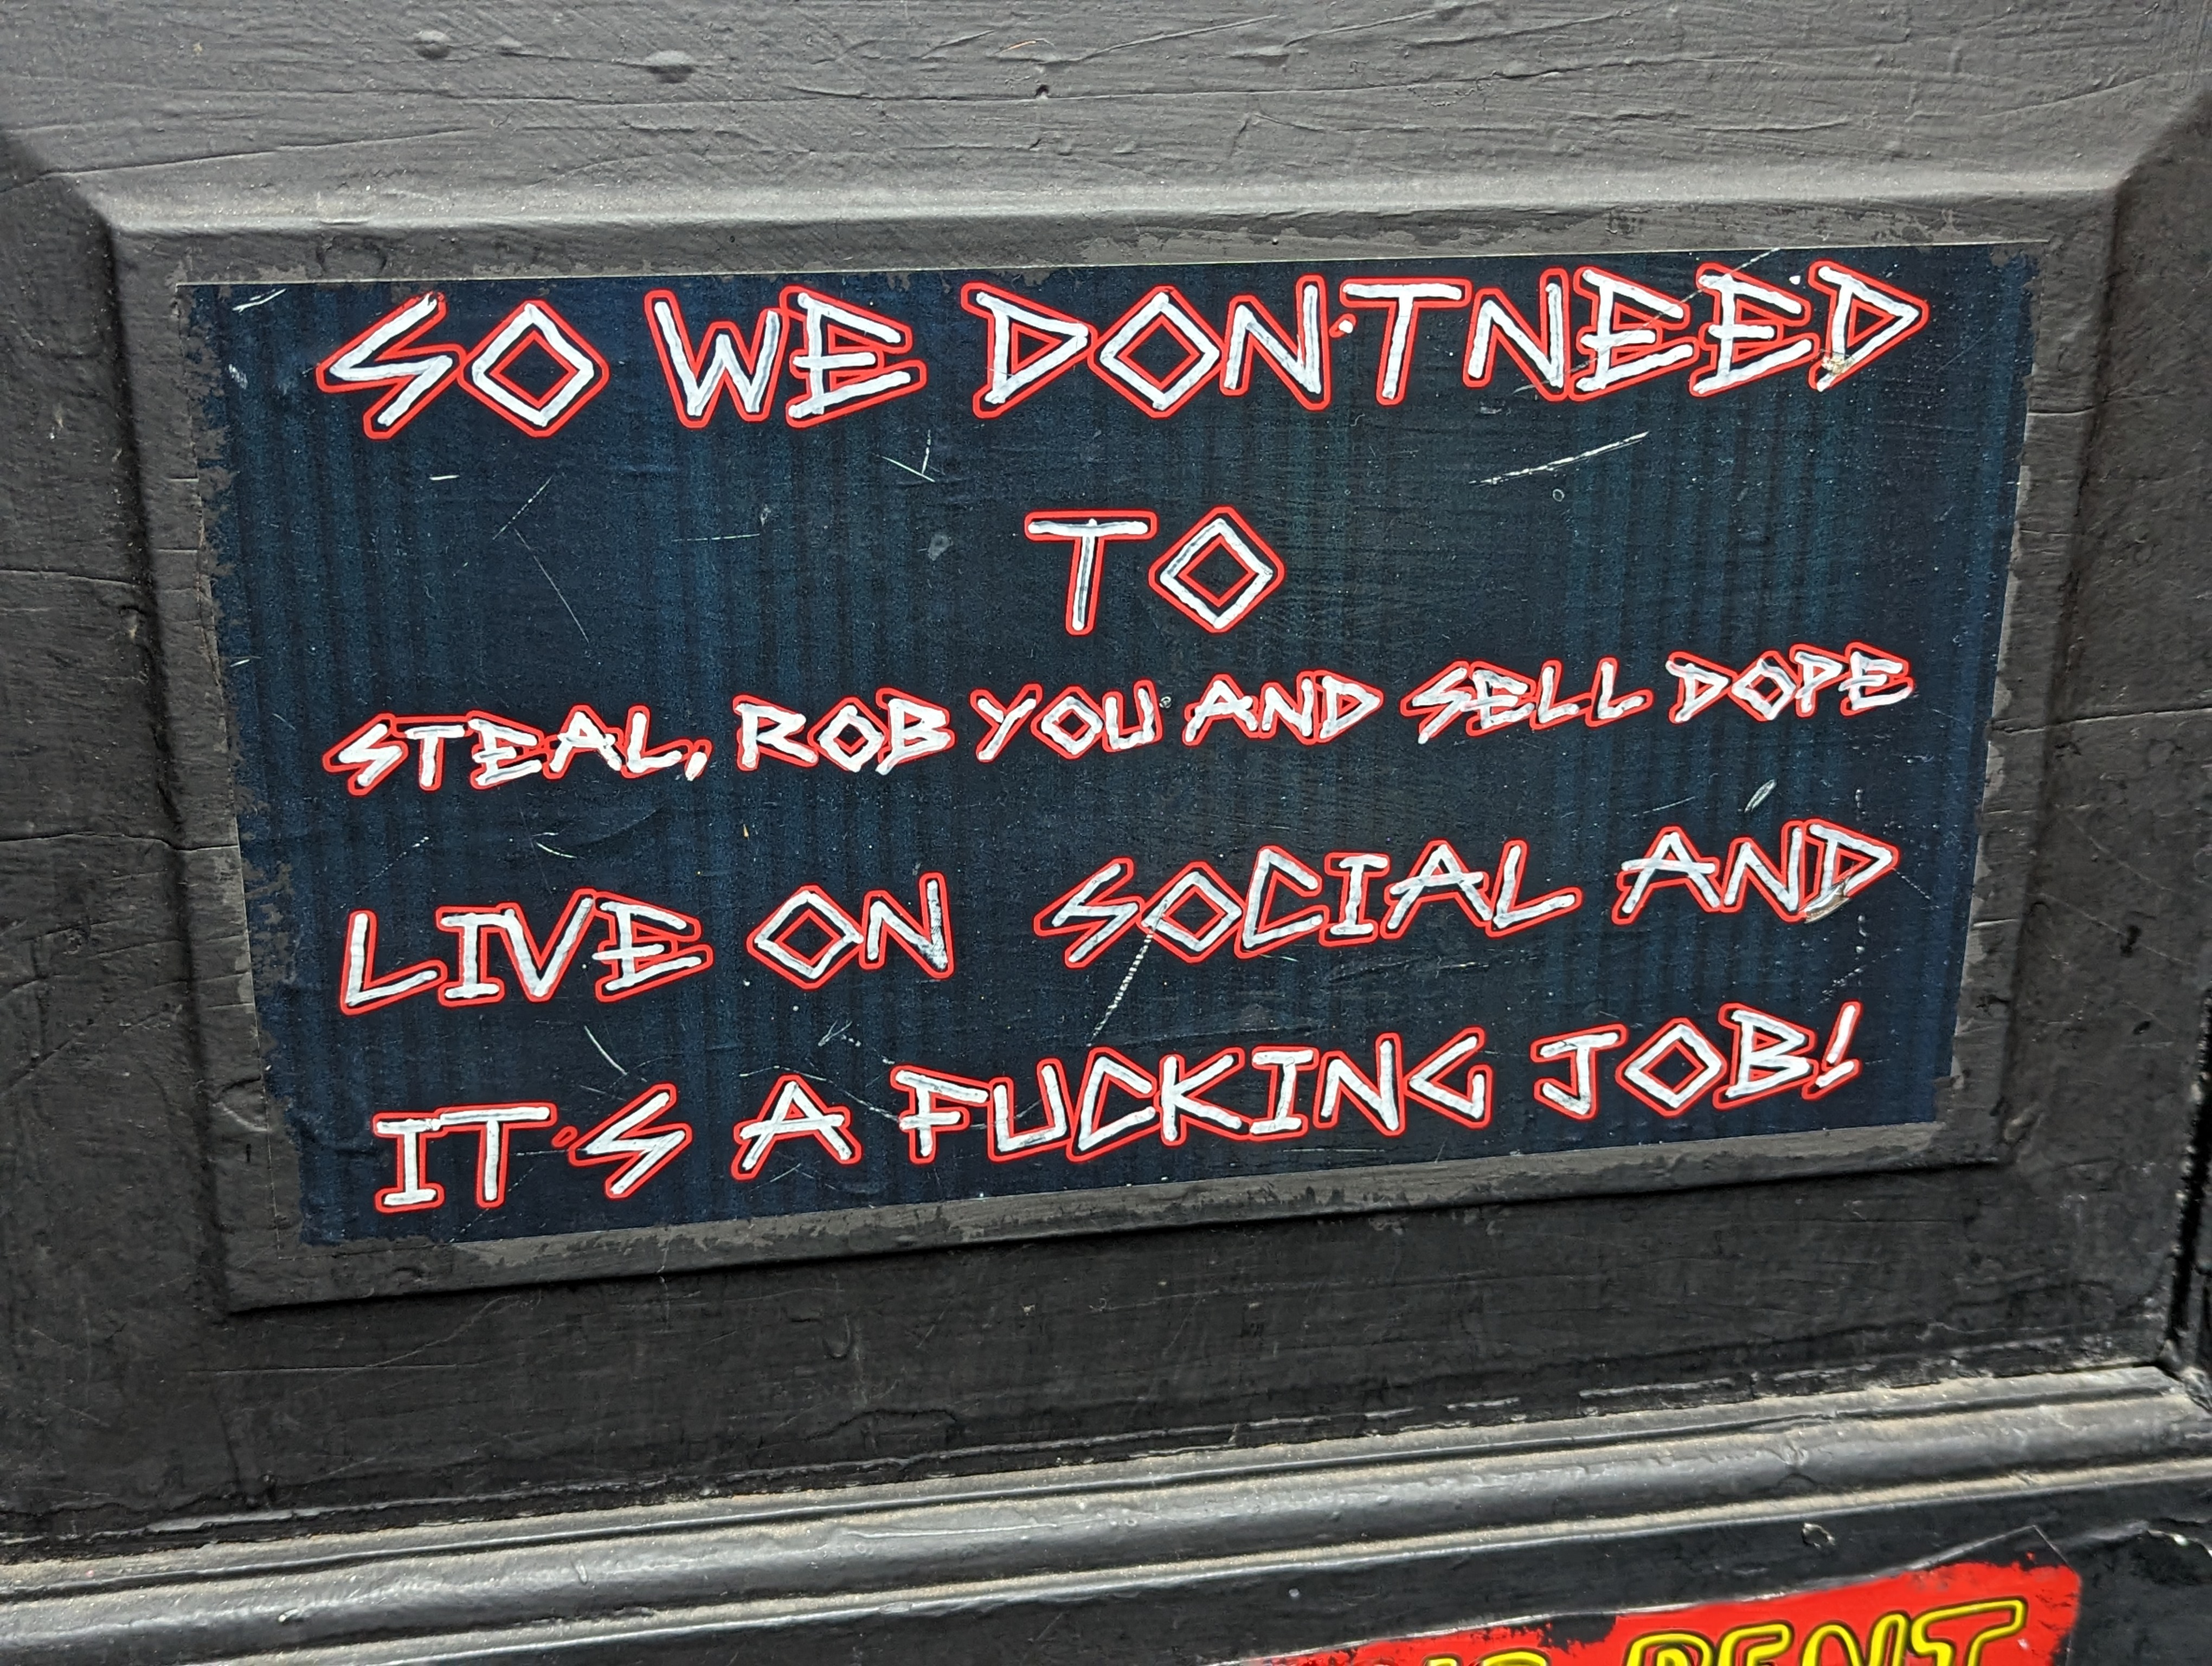 SO WE DON'T NEED
TO
STEAL, ROB YOU AND SELL DOPE
LIVE ON SOCIAL AND
IT'S A FUCKING JOB!
RENT